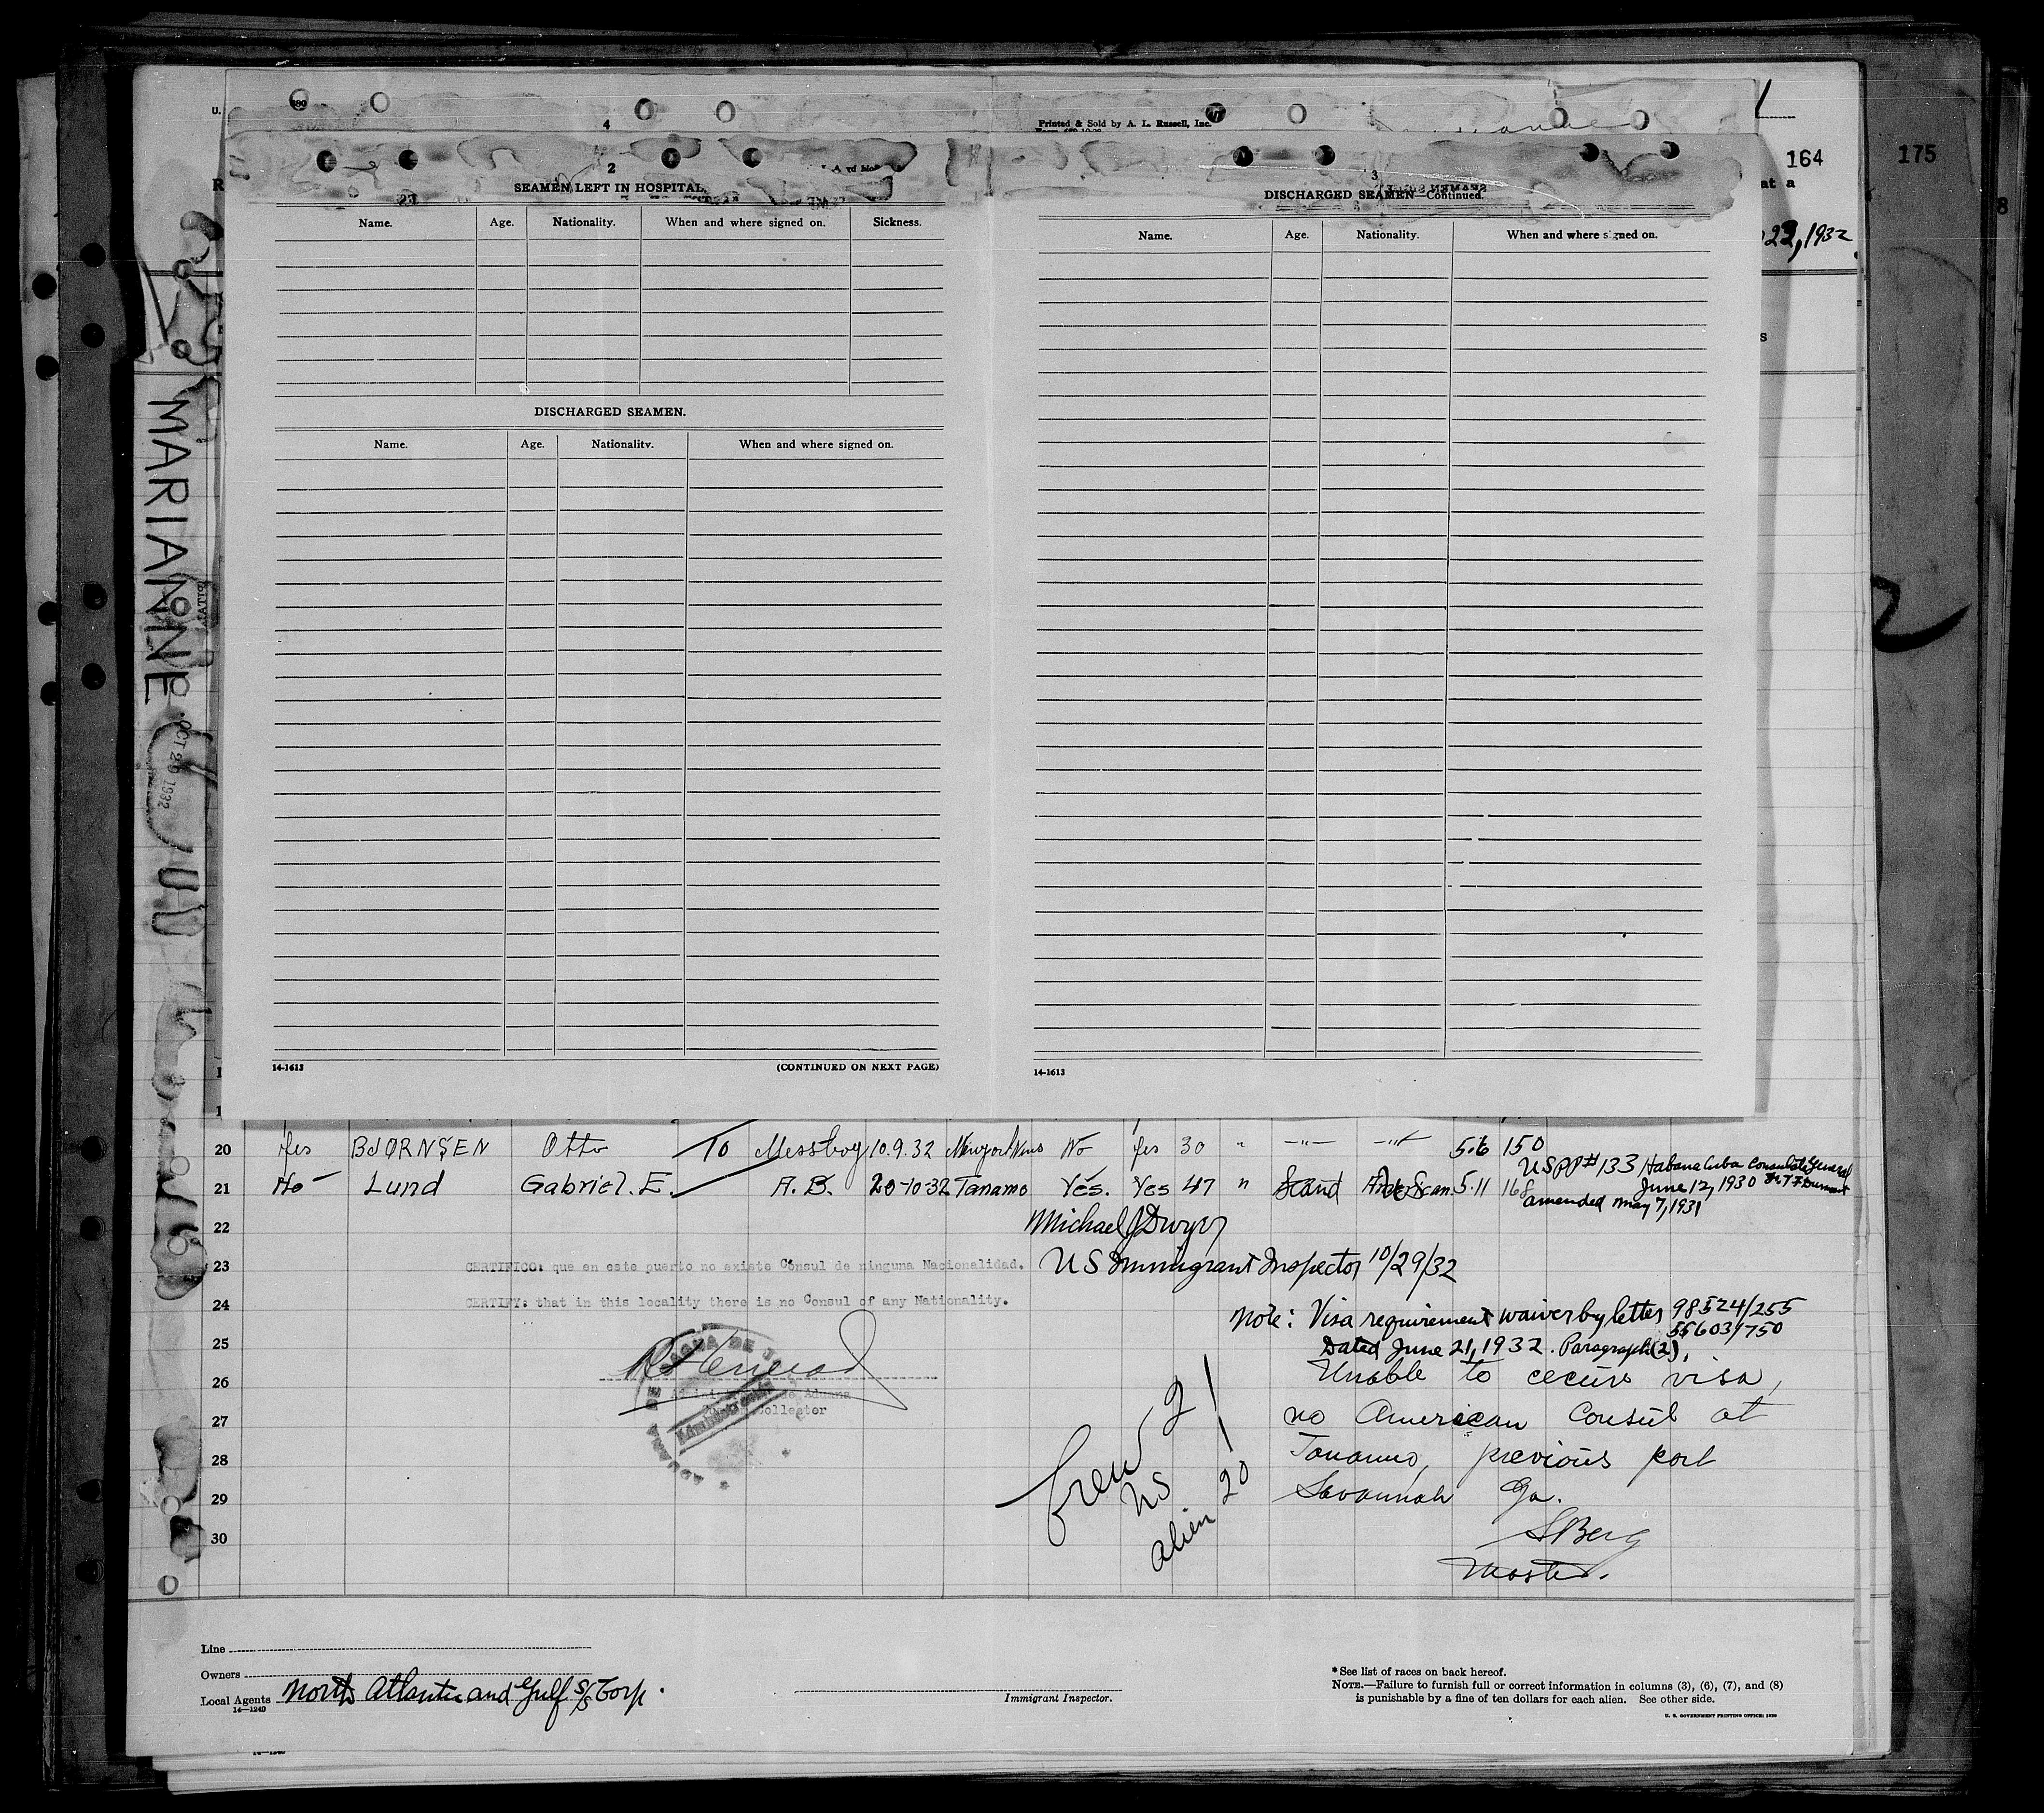 4
Printed & Sold by A. L. Russell, Inc.
164
175
at a
23, 1932
8
2
SEAMEN LEFT IN HOSPITAL
Name. Age. Nationality. When and where signed on. Sickness.
DISCHARGED SEAMEN.
Name. Age. Nationality. When and where signed on.
14-1613 (CONTINUED ON NEXT PAGE)
3
DISCHARGED SEAMEN—Continued.
Name. Age. Nationality. When and where signed on.
14-1613
MARIANNE
OCT 29 1932
20 Yes BJØRNSEN Otto To Messboy 10.9.32 No Yes 30 " —"— —"— 5.6 150
21 No Lund Gabriel. E. A. B. 20-10-32 Tanamo Yes. Yes 47 " Scand Scan. 5.11 168
USPP# 133 Habana Cuba Consulate General
June 12, 1930
amended May 7, 1931
22 Michael J Dwyer
23 CERTIFICO: que en este puerto no existe Cónsul de ninguna Nacionalidad. US Immigrant Inspector 10/29/32
24 CERTIFY: that in this locality there is no Consul of any Nationality.
Note: Visa requirement waiver by letter 98524/255
55603/750
25 Dated June 21, 1932. Paragraph (2).
Unable to secure visa,
26
Collector
27 no American Consul at
28 Tanamo, previous port
29 Savannah Ga.
30 S Berg
Master.
Crew 21
US 1
alien 20
Line
Owners
Local Agents North Atlantic and Gulf S/S Corp.
14—1240
Immigrant Inspector.
* See list of races on back hereof.
NOTE.—Failure to furnish full or correct information in columns (3), (6), (7), and (8)
is punishable by a fine of ten dollars for each alien. See other side.
U. S. GOVERNMENT PRINTING OFFICE: 1930